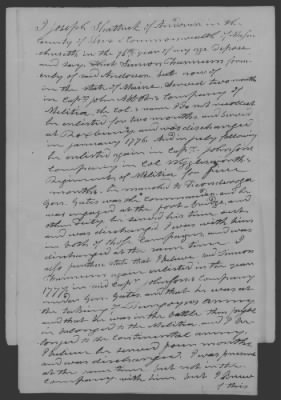 I Joseph Shattuck of Andover in the
County of Essex & Commonwealth of Massa
chusetts in the 76th year of my age Depose
and say that Simon Farnum form
erly of said Andover but now of
in the state of Maine. Served two month
in Capt. John Abbots Company of
Militia, the Col's name I do not recollect
he enlisted for two months and served
at Roxbury and was discharged
in January 1776. And in July following
he enlisted again in Capt. Johnsons
Company in Col Wigglesworths
Regiment of Militia for five
months. he marched to Ticonderoga
Gen. Gates was the commander and he
was engaged at the foot bridge, and
other duty he served his time out
and was discharged. I was with him
in both of these Campaigns, and was
discharged at the same time. I
also further state that I believe said Simon
Farnum again enlisted in the year
1777 in said Capt. Johnsons Company
under Gen. Gates and that he was at
the taking of Burgoynes army
and that he was in the battle
belonged to the Militia, and I be
longed to the Continental army,
I believe he served four months
and was discharged. I was present
at the same time but not in the
Company with him but I know
of this